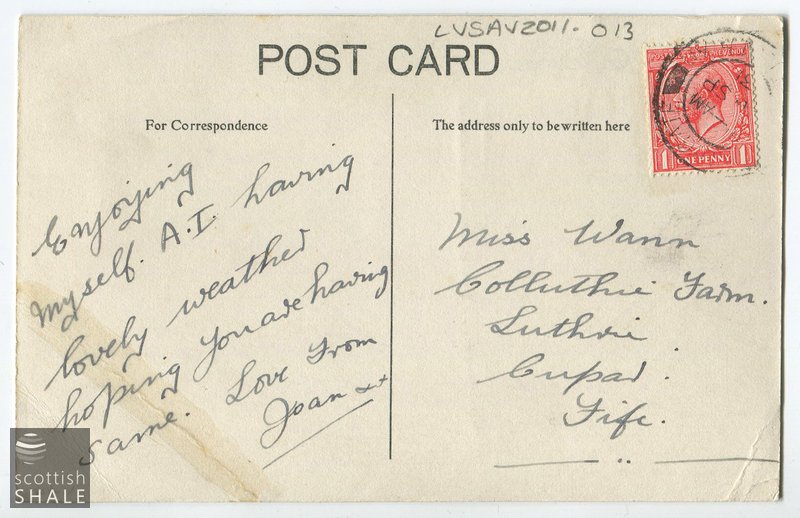 LVSAV2011. 013
POST CARD
For Correspondence
The address only to be written here
POSTAGE REVENUE
1 ONE PENNY 1
AM
SP
Enjoying
Myself. A.I. having
lovely weather
hoping you are having
same. Love From
Joan xx
Miss Wann
Colluthie Farm.
Luthrie
Cupar.
Fife.
scottish
SHALE